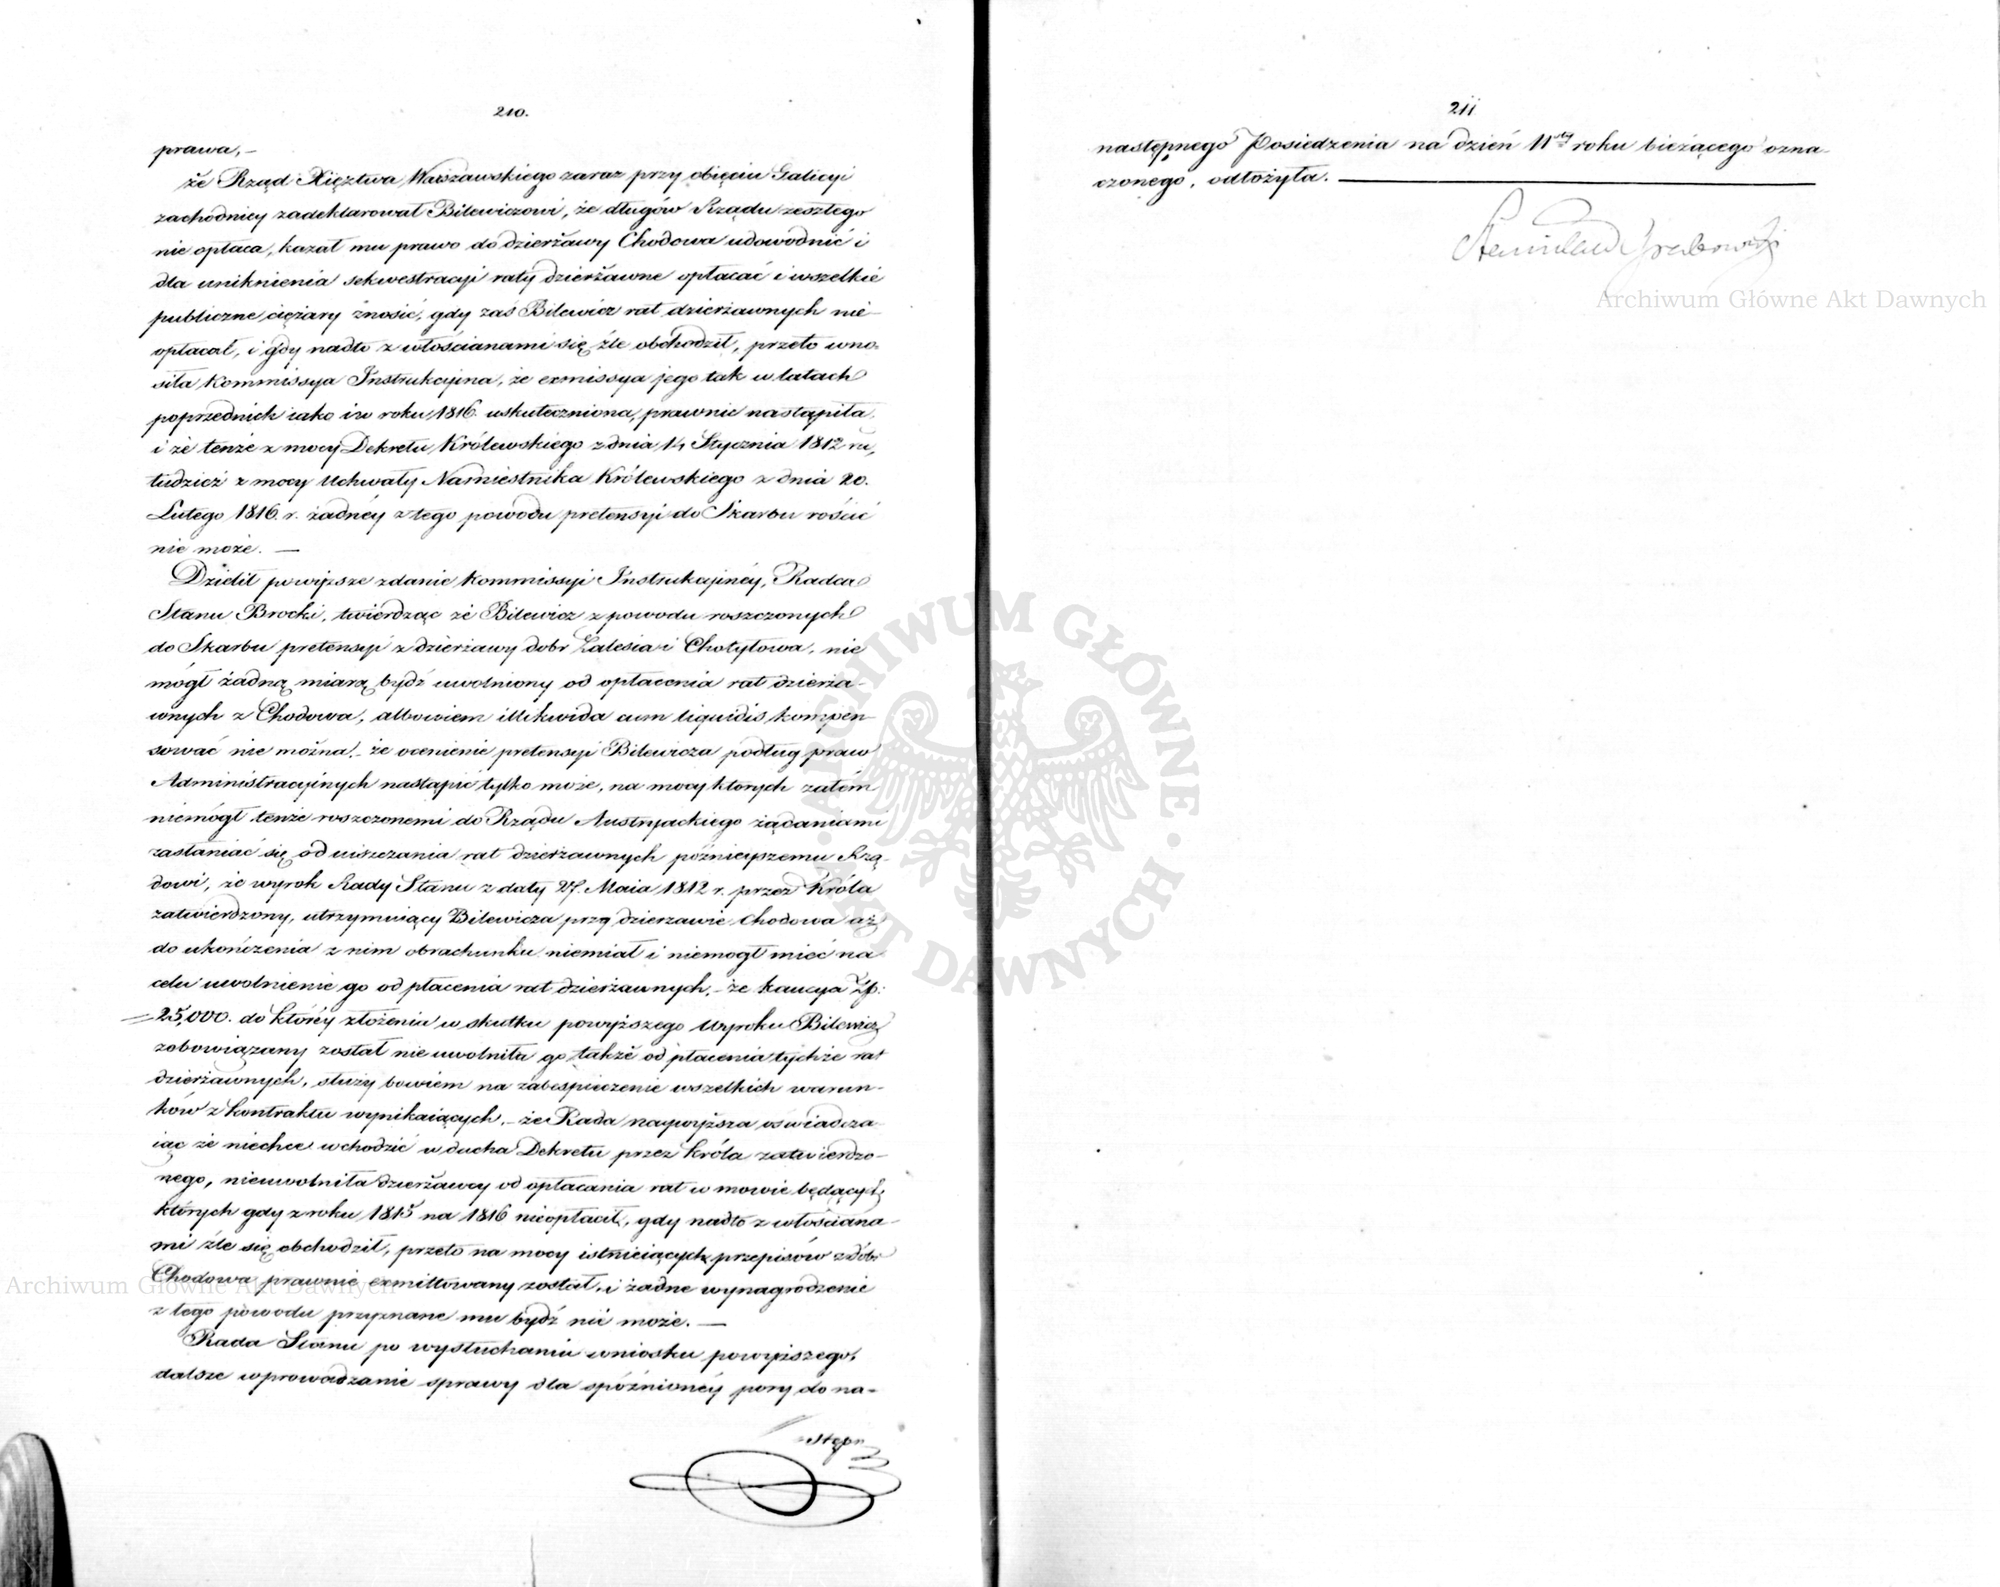 210.
prawa,-
że Rząd Xięztwa Warszawskiego zaraz przy obięciu Galicyi
zachodniey zadeklarował Bilewiczowi, że długów Rządu zeszłego
nie opłaca, kazał mu prawo do dzierżawy Chodowa udowodnić i
dla uniknienia sekwestracyi raty dzierżawne opłacać i wszelkie
publiczne ciężary znosić, gdy zaś Bilewicz rat dzierżawnych nie
opłacał, i gdy nadto z włościanami się źle obchodził, przeto wno-
siła Kommissya Instrukcyina, że exmissya jego tak w latach
poprzednich iako i w roku 1816 uskuteczniona, prawnie nastąpiła
i że tenże z mocy Dekretu Królewskiego z dnia 14 Stycznia 1812 ru,
tudzież z mocy Uchwały Namiestnika Królewskiego z dnia 20.
Lutego 1816. r. żadnéy z tego powodu pretensyi do Skarbu rościć
nie może. —
Dzielił powyższe zdanie Kommissyi Instrukcyinéy, Radca
Stanu Brocki, twierdząc że Bilewicz z powodu roszczonych
do Skarbu pretensyi z dzierżawy dobr Zalesia i Chotyłowa, nie
mógł żadną miarą bydź uwolniony od opłacenia rat dzierża-
wnych z Chodowa, albowiem illikwida cum liquidis kompen-
sować nie można,- że ocenienie pretensyi Bilewicza podług praw
Administracyinych nastąpić tylko może, na mocy których zatém
niemógł tenże roszczonemi do Rządu Austryackiego żądaniami
zasłaniać się od uiszczania rat dzierżawnych późnieyszemu Rzą-
dowi, że wyrok Rady Stanu z daty 27. Maia 1812 r. przez Króla
zatwierdzony, utrzymuiący Bilewicza przy dzierzawie Chodowa aż
do ukończenia z nim obrachunku niemiał i niemogł mieć na
celu uwolnienie go od płacenia rat dzierżawnych,- że kaucya Zp:
25,000. do któréy złożenia w skutku powyższego Wyroku Bilewicz
zobowiązany został nie uwolniła go także od płacenia tychże rat
dzierżawnych, służy bowiem na zabespieczenie wszelkich warun-
ków z kontraktu wynikaiących,- że Rada naywyższa oświadcza-
iąc że niechce wchodzić w ducha Dekretu przez Króla zatwierdzo-
nego, nieuwolniła dzierżawcy od opłacania rat w mowie będących
których gdy z roku 1815 na 1816 nieopłacił, gdy nadto z włościana-
mi źle się obchodził, przeto na mocy istnieiących przepisów z dóbr
Chodowa prawnie exmittowany został, i żadne wynagrodzenie
z tego powodu przyznane mu bydź nie może. —
Rada Stanu po wysłuchaniu wniosku powyższego,
dalsze wprowadzanie sprawy dla spóźnionéy pory do na-
stępn
211
następnego Posiedzenia na dzień 11sty roku bieżącego ozna-
czonego, odłożyła. —
Stanisław Grabowski
Archiwum Główne Akt Dawnych
Archiwum Główne Akt Dawnych
ARCHIWUM GŁÓWNE AKT DAWNYCH